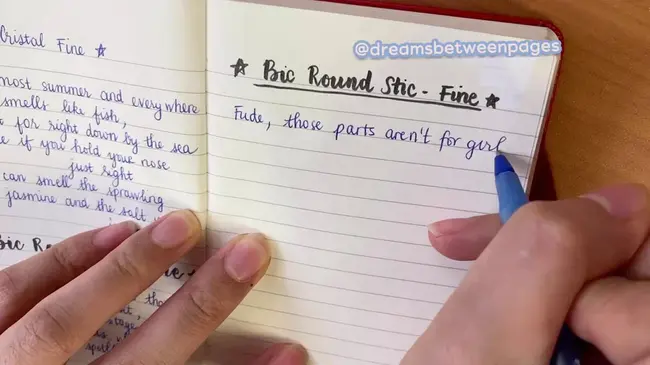 Cristal Fine ☆
most summer and everywhere
smells like fish,
for right down by the sea
if you hold your nose
just right
can smell the sprawling
jasmine and the salt
Bic
@dreamsbetweenpages
☆ Bic Round Stic - Fine ☆
Fude, those parts aren't for girl